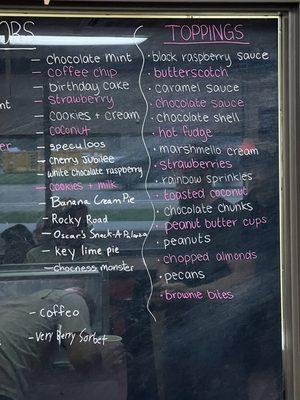 ORS
- chocolate mint
- coffee chip
- birthday cake
- strawberry
- cookies + cream
- coconut
- speculoos
- cherry Jubilee
white chocolate raspberry
- cookies + milk
- Banana Cream Pie
- Rocky Road
- Oscar's Snack-A-Palooza
- key lime pie
- chocness monster
- coffeo
- Very Berry Sorbet
TOPPINGS
· black raspberry sauce
· butterscotch
· caramel sauce
· chocolate sauce
· chocolate shell
· hot fudge
· marshmello cream
· strawberries
· rainbow sprinkles
· toasted coconut
· chocolate chunks
· peanut butter cups
· peanuts
· chopped almonds
· pecans
· brownie bites